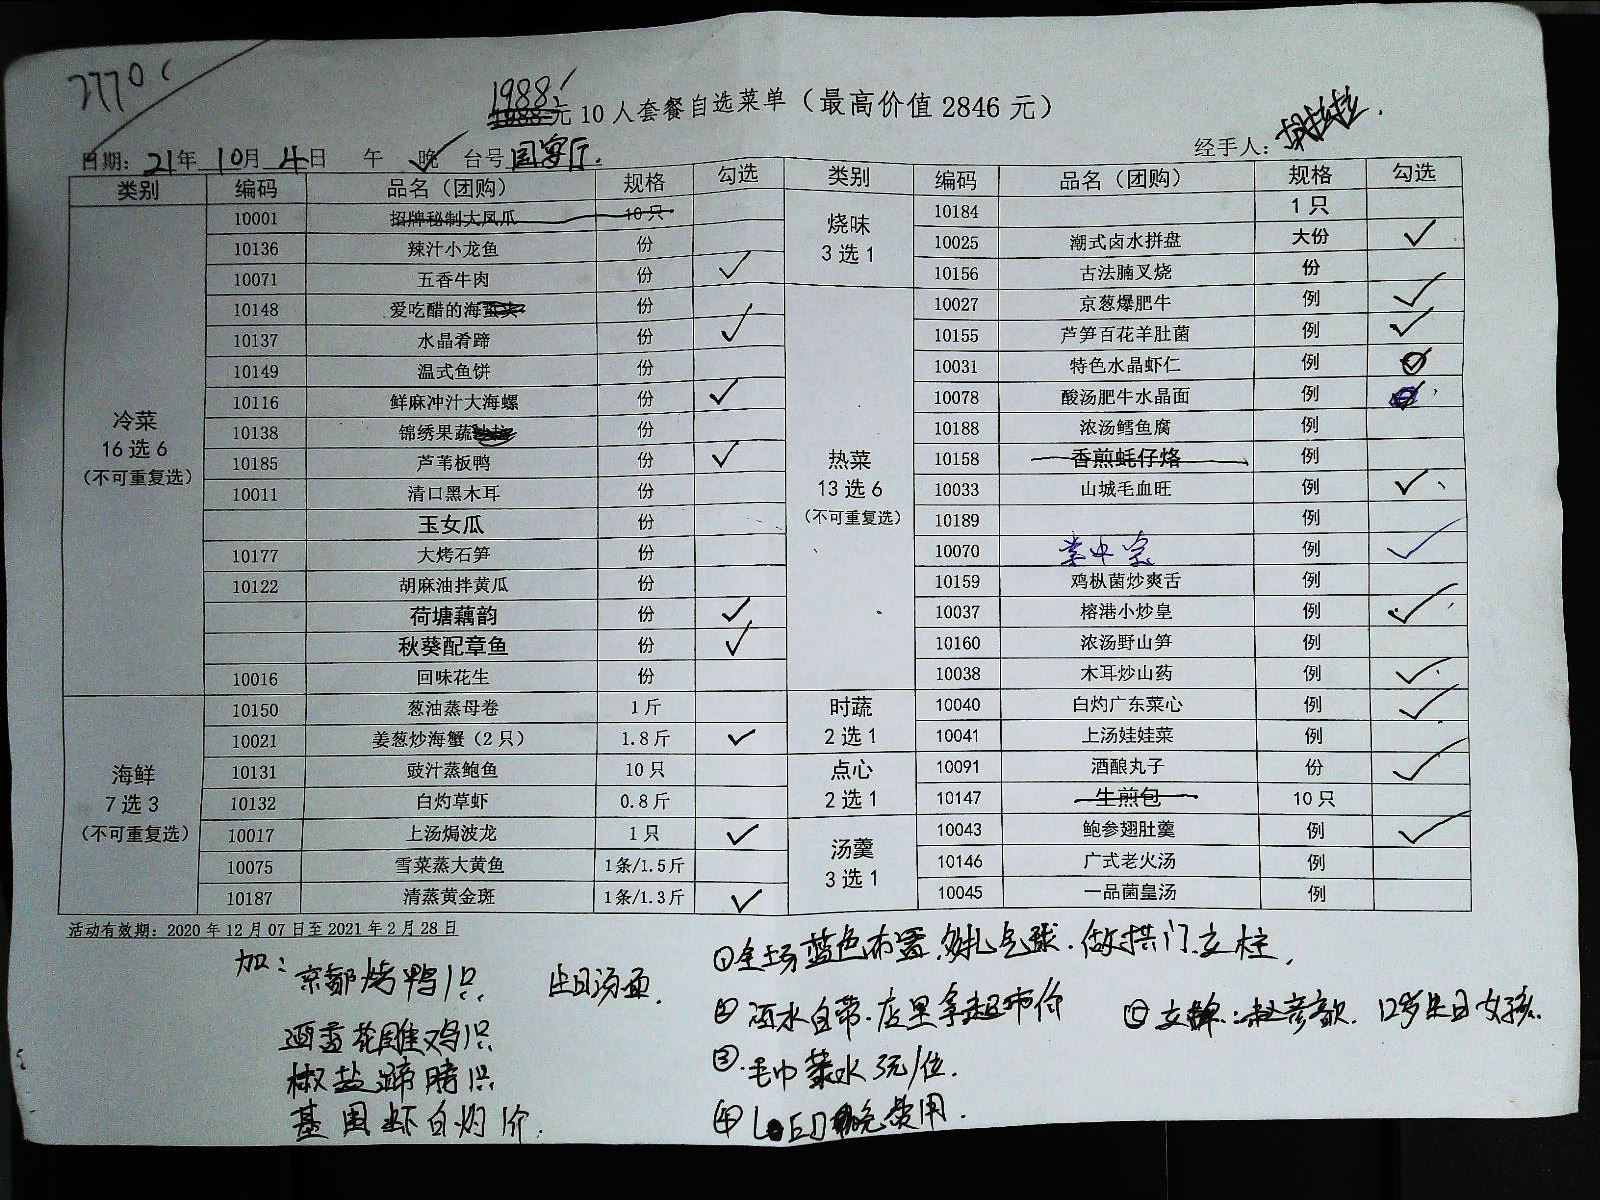 2770
1988
1988元10人套餐自选菜单（最高价值2846元）
日期：21年10月4日 午 晚 台号国宴厅.
经手人：
类别 编码 品名（团购） 规格 勾选 类别 编码 品名（团购） 规格 勾选
冷菜
16选6
（不可重复选）
10001 招牌秘制大凤爪 10只
10136 辣汁小龙鱼 份
10071 五香牛肉 份 ✓
10148 爱吃醋的海 份
10137 水晶肴蹄 份 ✓
10149 温式鱼饼 份
10116 鲜麻冲汁大海螺 份 ✓
10138 锦绣果蔬 份
10185 芦苇板鸭 份 ✓
10011 清口黑木耳 份
玉女瓜 份
10177 大烤石笋 份
10122 胡麻油拌黄瓜 份
荷塘藕韵 份 ✓
秋葵配章鱼 份 ✓
10016 回味花生 份
海鲜
7选3
（不可重复选）
10150 葱油蒸母卷 1斤
10021 姜葱炒海蟹（2只） 1.8斤 ✓
10131 豉汁蒸鲍鱼 10只
10132 白灼草虾 0.8斤
10017 上汤焗波龙 1只 ✓
10075 雪菜蒸大黄鱼 1条/1.5斤
10187 清蒸黄金斑 1条/1.3斤 ✓
烧味
3选1
10184 1只
10025 潮式卤水拼盘 大份 ✓
10156 古法腩叉烧 份
热菜
13选6
（不可重复选）
10027 京葱爆肥牛 例 ✓
10155 芦笋百花羊肚菌 例 ✓
10031 特色水晶虾仁 例
10078 酸汤肥牛水晶面 例
10188 浓汤鳕鱼腐 例
10158 香煎蚝仔烙 例
10033 山城毛血旺 例 ✓
10189 例
10070 掌中宝 例 ✓
10159 鸡枞菌炒爽舌 例
10037 榕港小炒皇 例 ✓
10160 浓汤野山笋 例
10038 木耳炒山药 例 ✓
时蔬
2选1
10040 白灼广东菜心 例 ✓
10041 上汤娃娃菜 例
点心
2选1
10091 酒酿丸子 份 ✓
10147 生煎包 10只
汤羹
3选1
10043 鲍参翅肚羹 例 ✓
10146 广式老火汤 例
10045 一品菌皇汤 例
活动有效期：2020年12月07日至2021年2月28日
加：京都烤鸭1只 生日汤面.
酒壶花雕鸡1只
椒盐蹄膀1只
基围虾白灼1份.
①全场蓝色布置.多扎气球.做拱门.立柱.
②酒水自带.店里拿超市价
③毛巾茶水3元/位.
④LED免费用.
⑤立牌：赵彦歆. 12岁生日女孩.